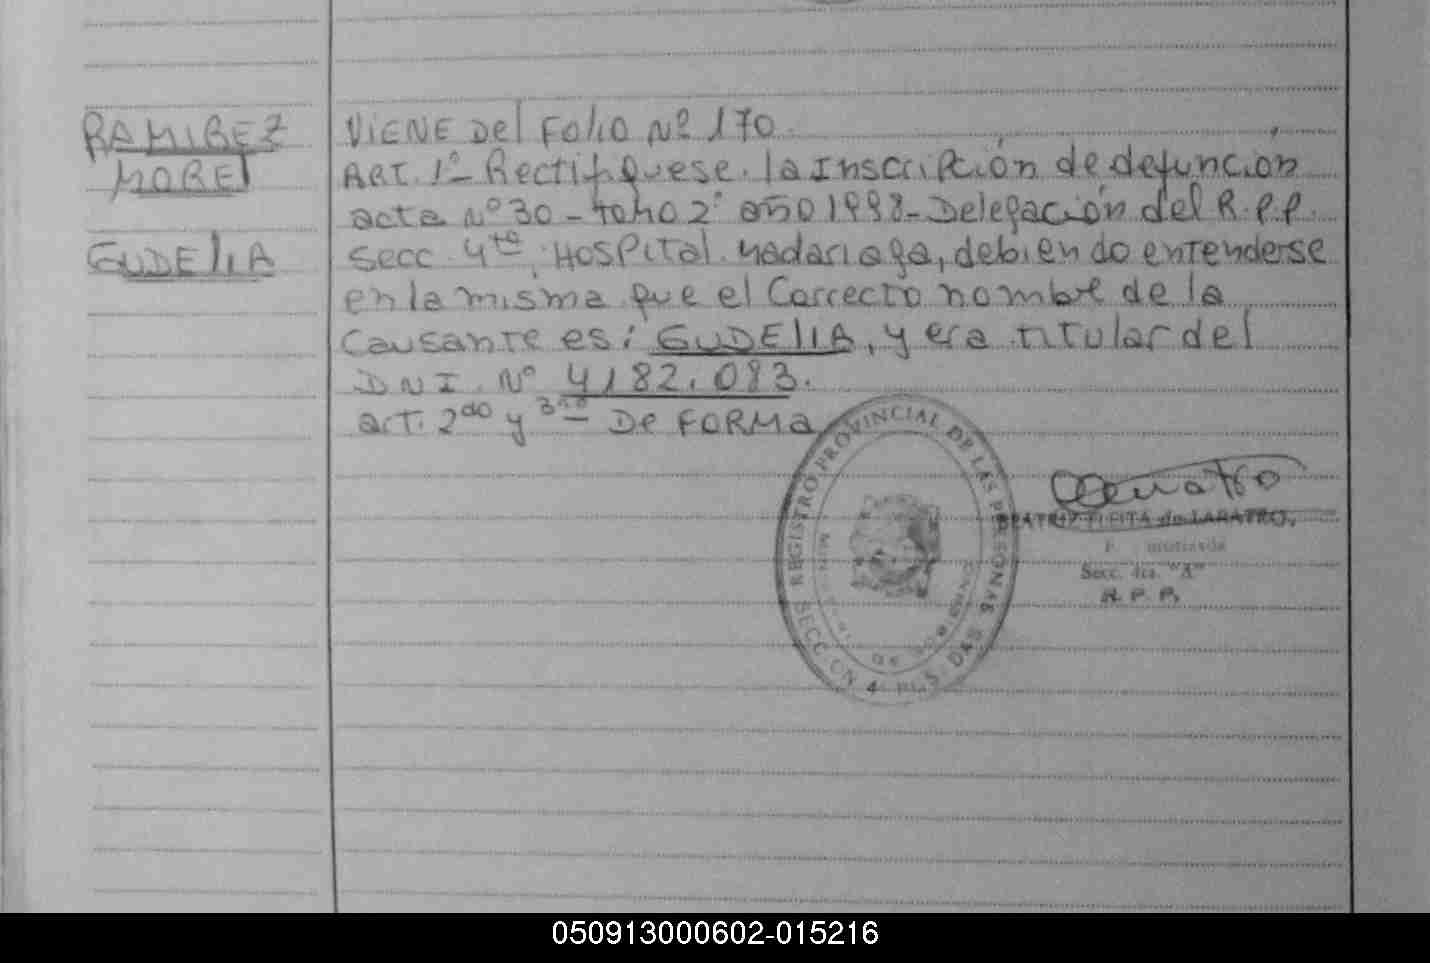 RAMIREZ
MOREL
GUDELIA
VIENE Del Folio Nº 170.
ART. 1º- Rectifíquese. la Inscripción de defunción
acta Nº 30 - tomo 2º año 1998 - Delegación del R.P.P.
Secc. 4ta, Hospital Madariaga, debiendo entenderse
en la misma que el Correcto nombre de la
Causante es: GUDELIA, y era titular del
DNI. Nº 4182.083.
art. 2do y 3ro De FORMA
REGISTRO PROVINCIAL DE LAS PERSONAS
SECCION 4ª PCS. DAS
de LABATRO.
Secc. 4ta. "A"
R. P. P.
050913000602-015216